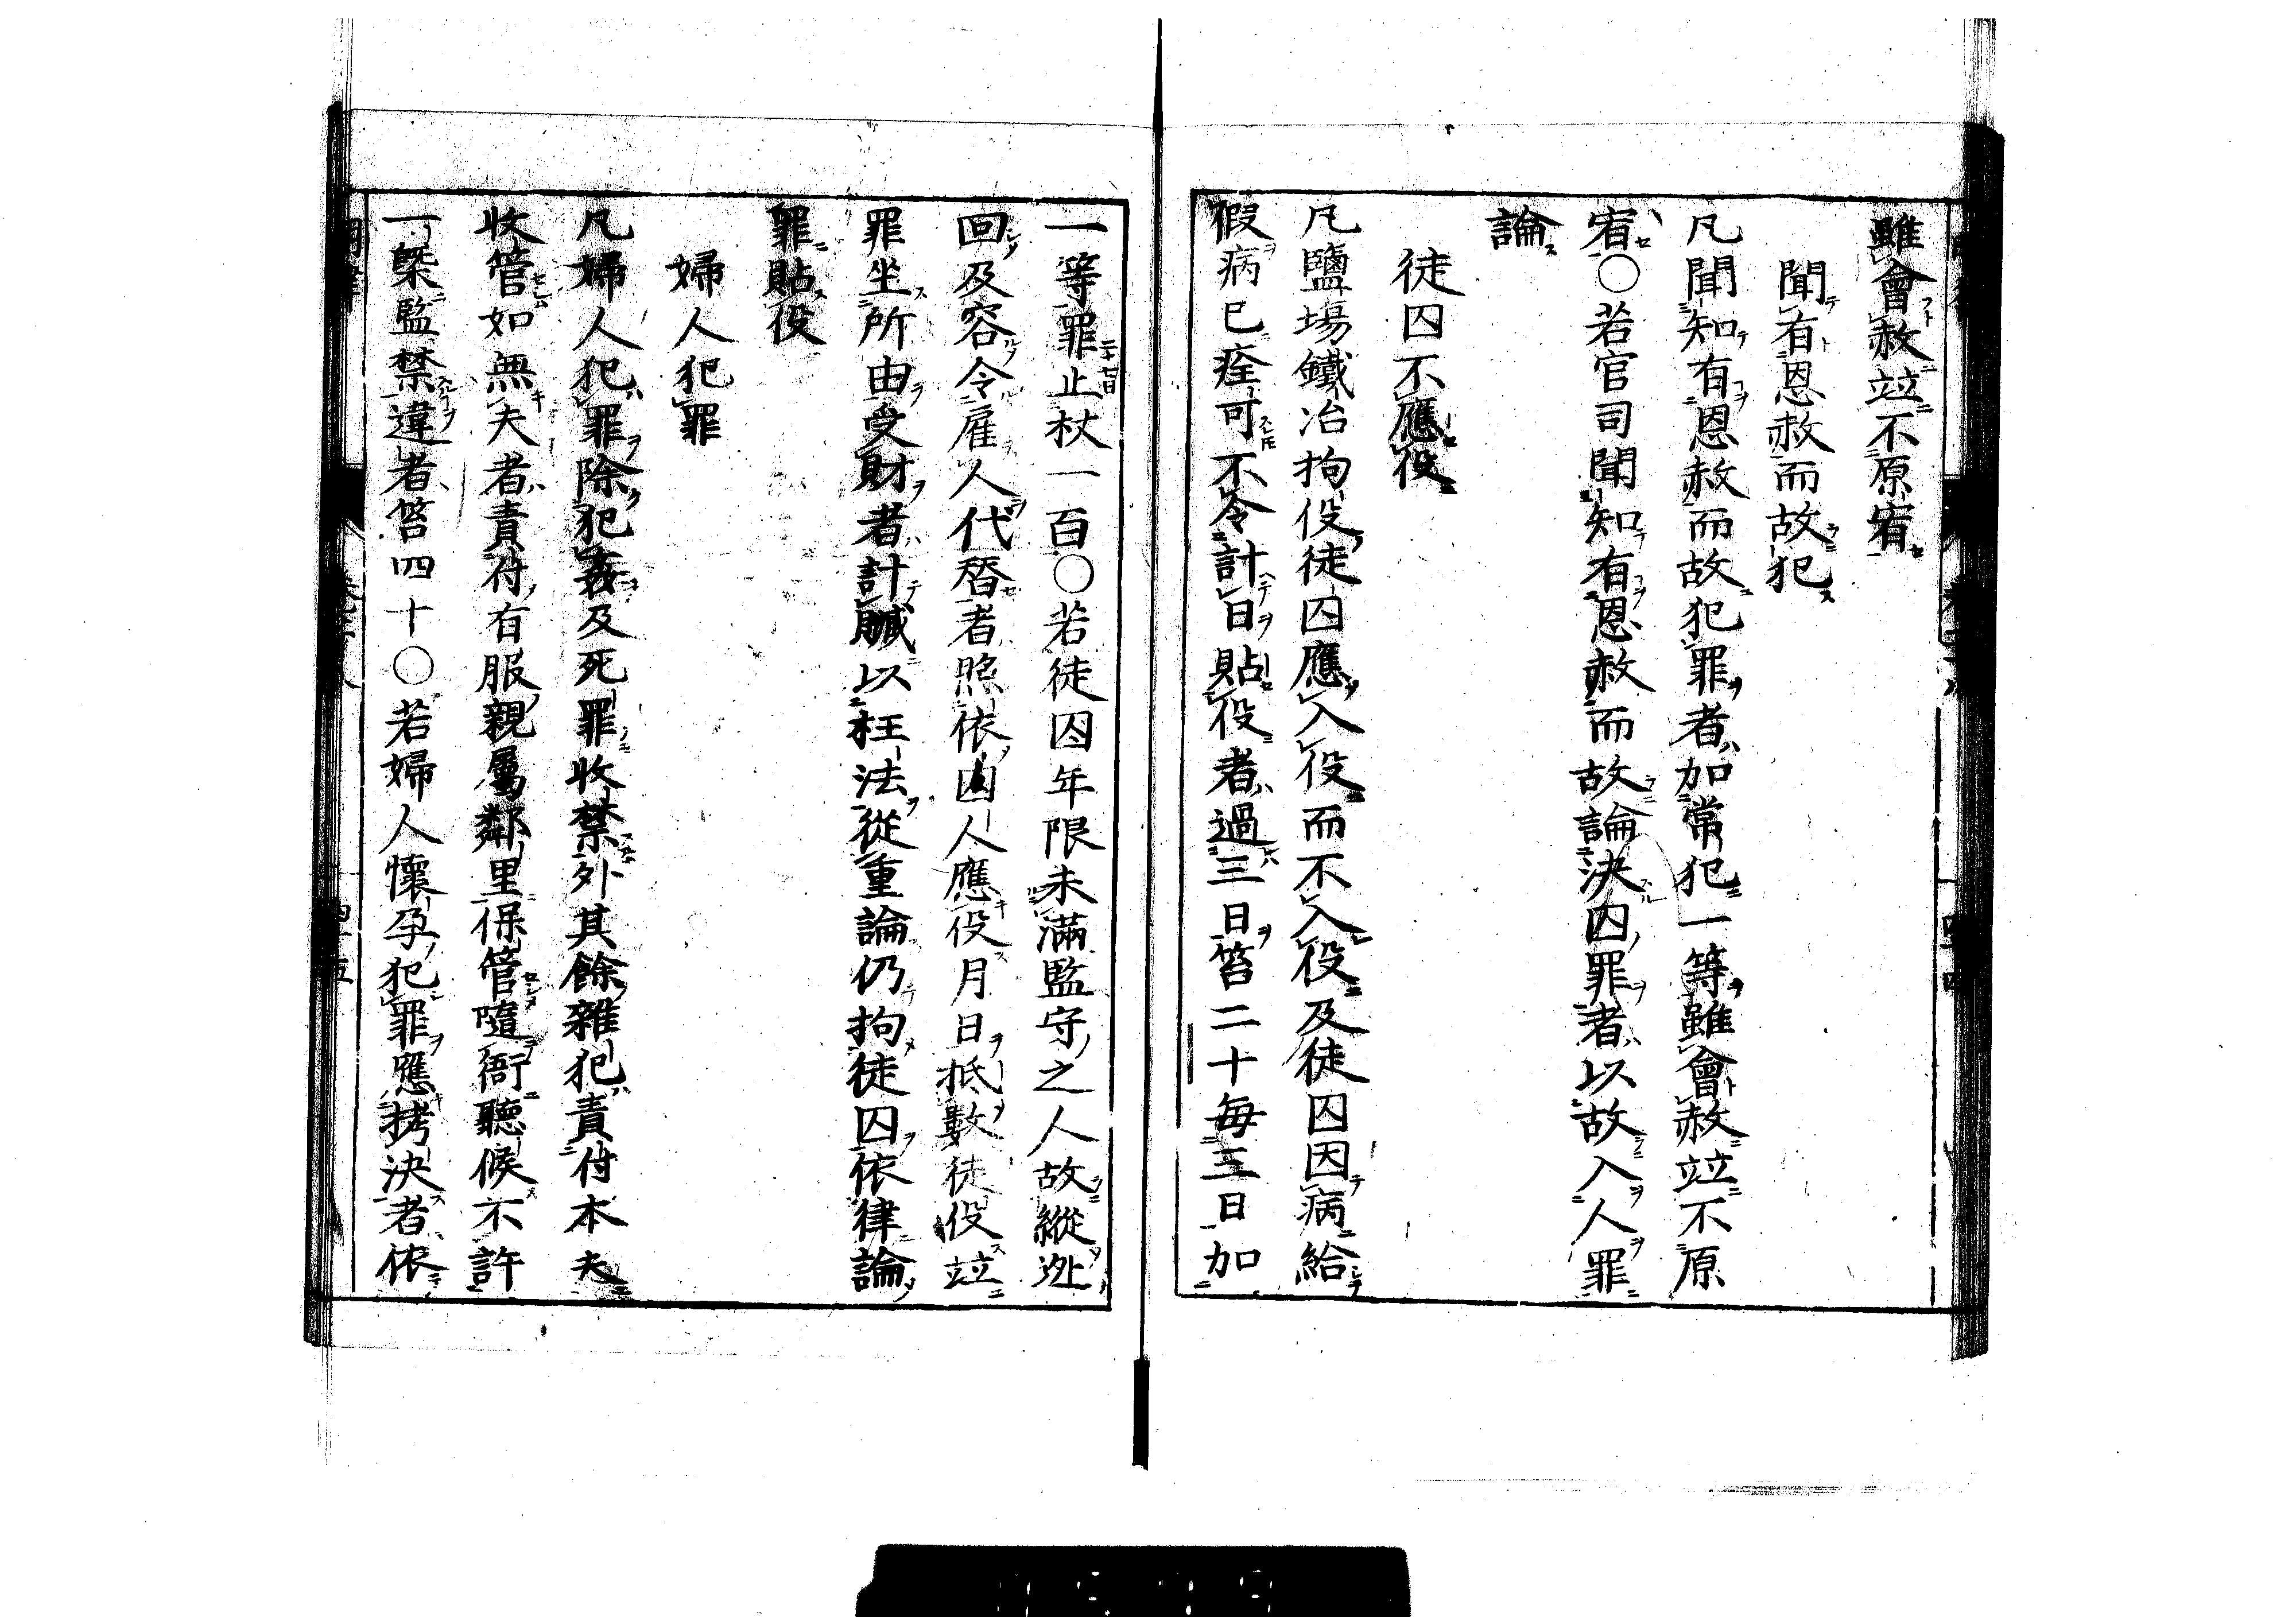 雖會赦竝不原宥
聞有恩赦而故犯
凡聞知有恩赦而故犯罪者加常犯一等雖會赦竝不原
宥○若官司聞知有恩赦而故論決囚罪者以故入人罪
論
徒囚不應役
凡鹽場鐵冶拘役徒囚應入役而不入役及徒囚因病給
假病已痊可不令計日貼役者過三日笞二十每三日加
一等罪止杖一百○若徒囚年限未滿監守之人故縱逃
回及容令雇人代替者照依囚人應役月日抵數徒役竝
罪坐所由受財者計贓以枉法從重論仍拘徒囚依律論
罪貼役
婦人犯罪
凡婦人犯罪除犯姦及死罪收禁外其餘雜犯責付本夫
收管如無夫者責付有服親屬鄰里保管隨衙聽候不許
一槩監禁違者笞四十○若婦人懷孕犯罪應拷決者依